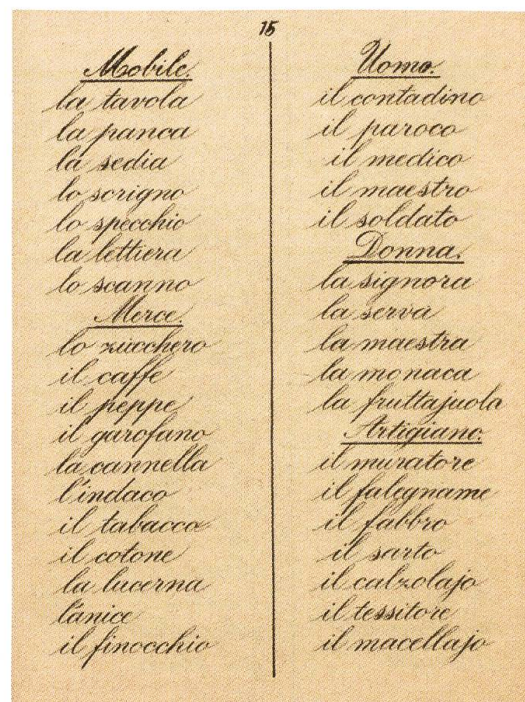 15
Mobile.
la tavola
la panca
la sedia
lo scrigno
lo specchio
la lettiera
lo scanno
Merce.
lo zucchero
il caffè
il peppe
il garofano
la cannella
l'indaco
il tabacco
il cotone
la lucerna
l'anice
il finocchio
Uomo.
il contadino
il paroco
il medico
il maestro
il soldato
Donna.
la signora
la serva
la maestra
la monaca
la fruttajuola
Artigiano.
il muratore
il falegname
il fabbro
il sarto
il calzolajo
il tessitore
il macellajo